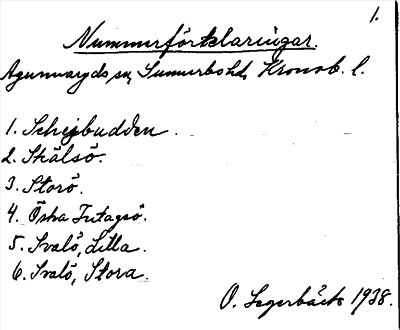 1.
Nummerförklaringar.
Agunnaryds sn, Sunnerbo hd, Kronob. l.
1. Schejbudden.
2. Skälsö.
3. Storö.
4. Östra Intagsö.
5. Svalö, Lilla.
6. Svalö, Stora.
O. Lagerbäck 1938.